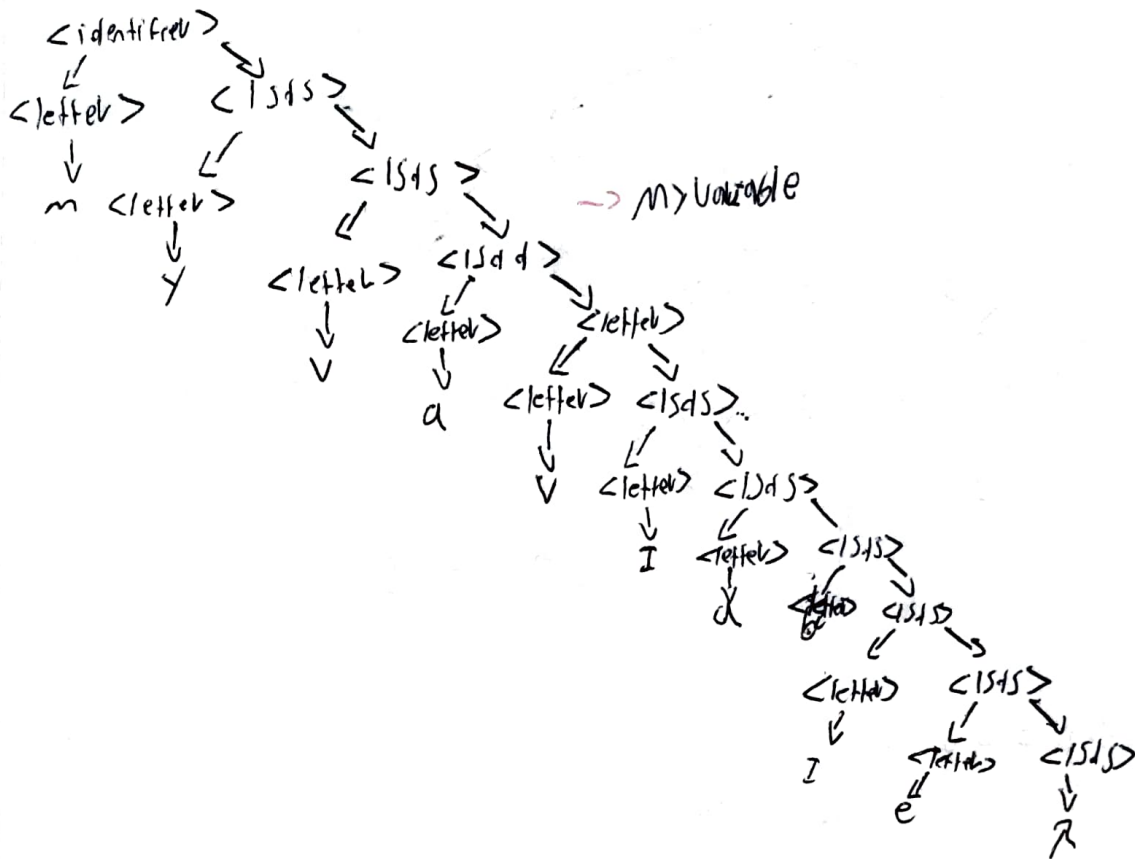 <identifier>
<letter> <lsds>
m <letter> <lsds>
→ myVariable
y <letter> <lsdd>
V <letter> <letter>
a <letter> <lsds>...
V <letter> <lsds>
I <letter> <lsds>
a <letter> <lsds>
b
<letter> <lsds>
I <letter> <lsds>
e λ